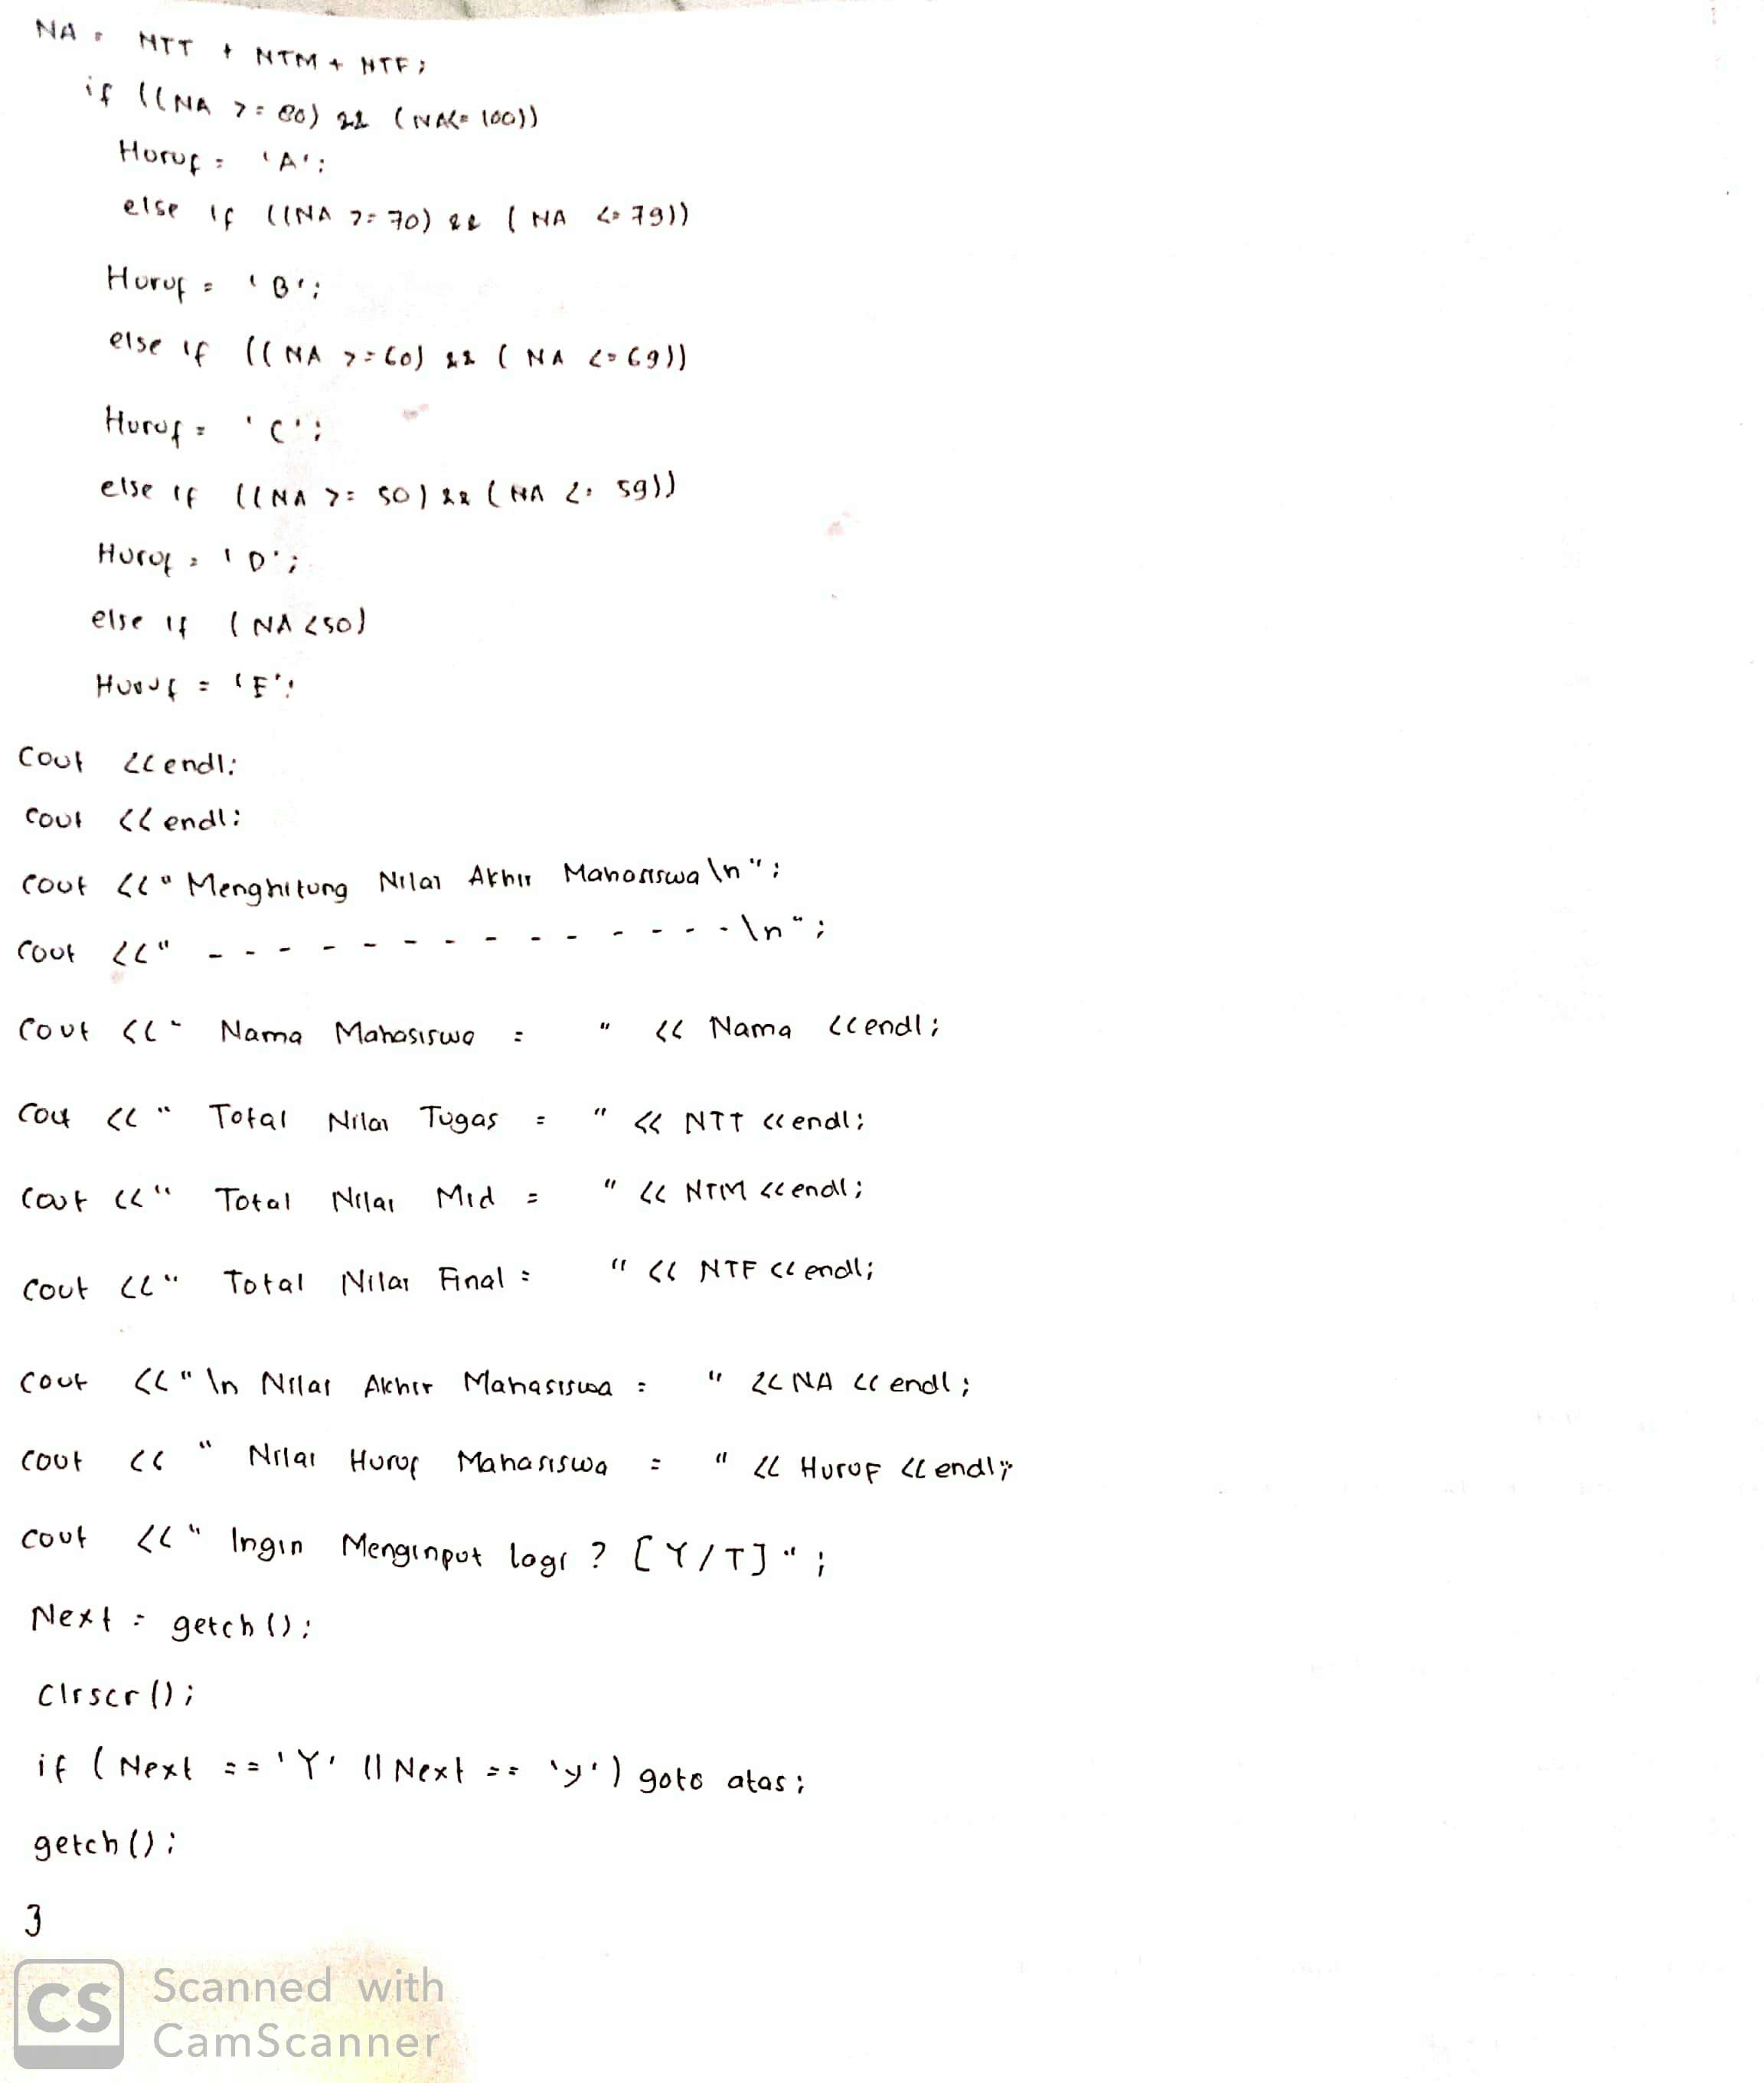 NA = NTT + NTM + NTF;
if ((NA >= 80) && (NA<= 100))
Huruf = 'A';
else if ((NA >= 70) && (NA <= 79))
Huruf = 'B';
else if ((NA >= 60) && (NA <= 69))
Huruf = 'C';
else if ((NA >= 50) && (NA <= 59))
Huruf = 'D';
else if (NA <50)
Huruf = 'E';
Cout <<endl;
cout <<endl;
cout <<"Menghitung Nilai Akhir Mahasiswa\n";
cout <<" - - - - - - - - - - - - - - \n";
Cout <<" Nama Mahasiswa = " << Nama <<endl;
Cout <<" Total Nilai Tugas = " << NTT <<endl;
Cout <<" Total Nilai Mid = " << NTM <<endl;
Cout <<" Total Nilai Final = " << NTF <<endl;
cout <<"\n Nilai Akhir Mahasiswa = " << NA <<endl;
cout << " Nilai Huruf Mahasiswa = " << Huruf <<endl;
cout <<" Ingin Menginput lagi ? [Y/T]";
Next = getch();
Clrscr();
if (Next == 'Y' || Next == 'y') goto atas;
getch();
}
CS Scanned with
CamScanner